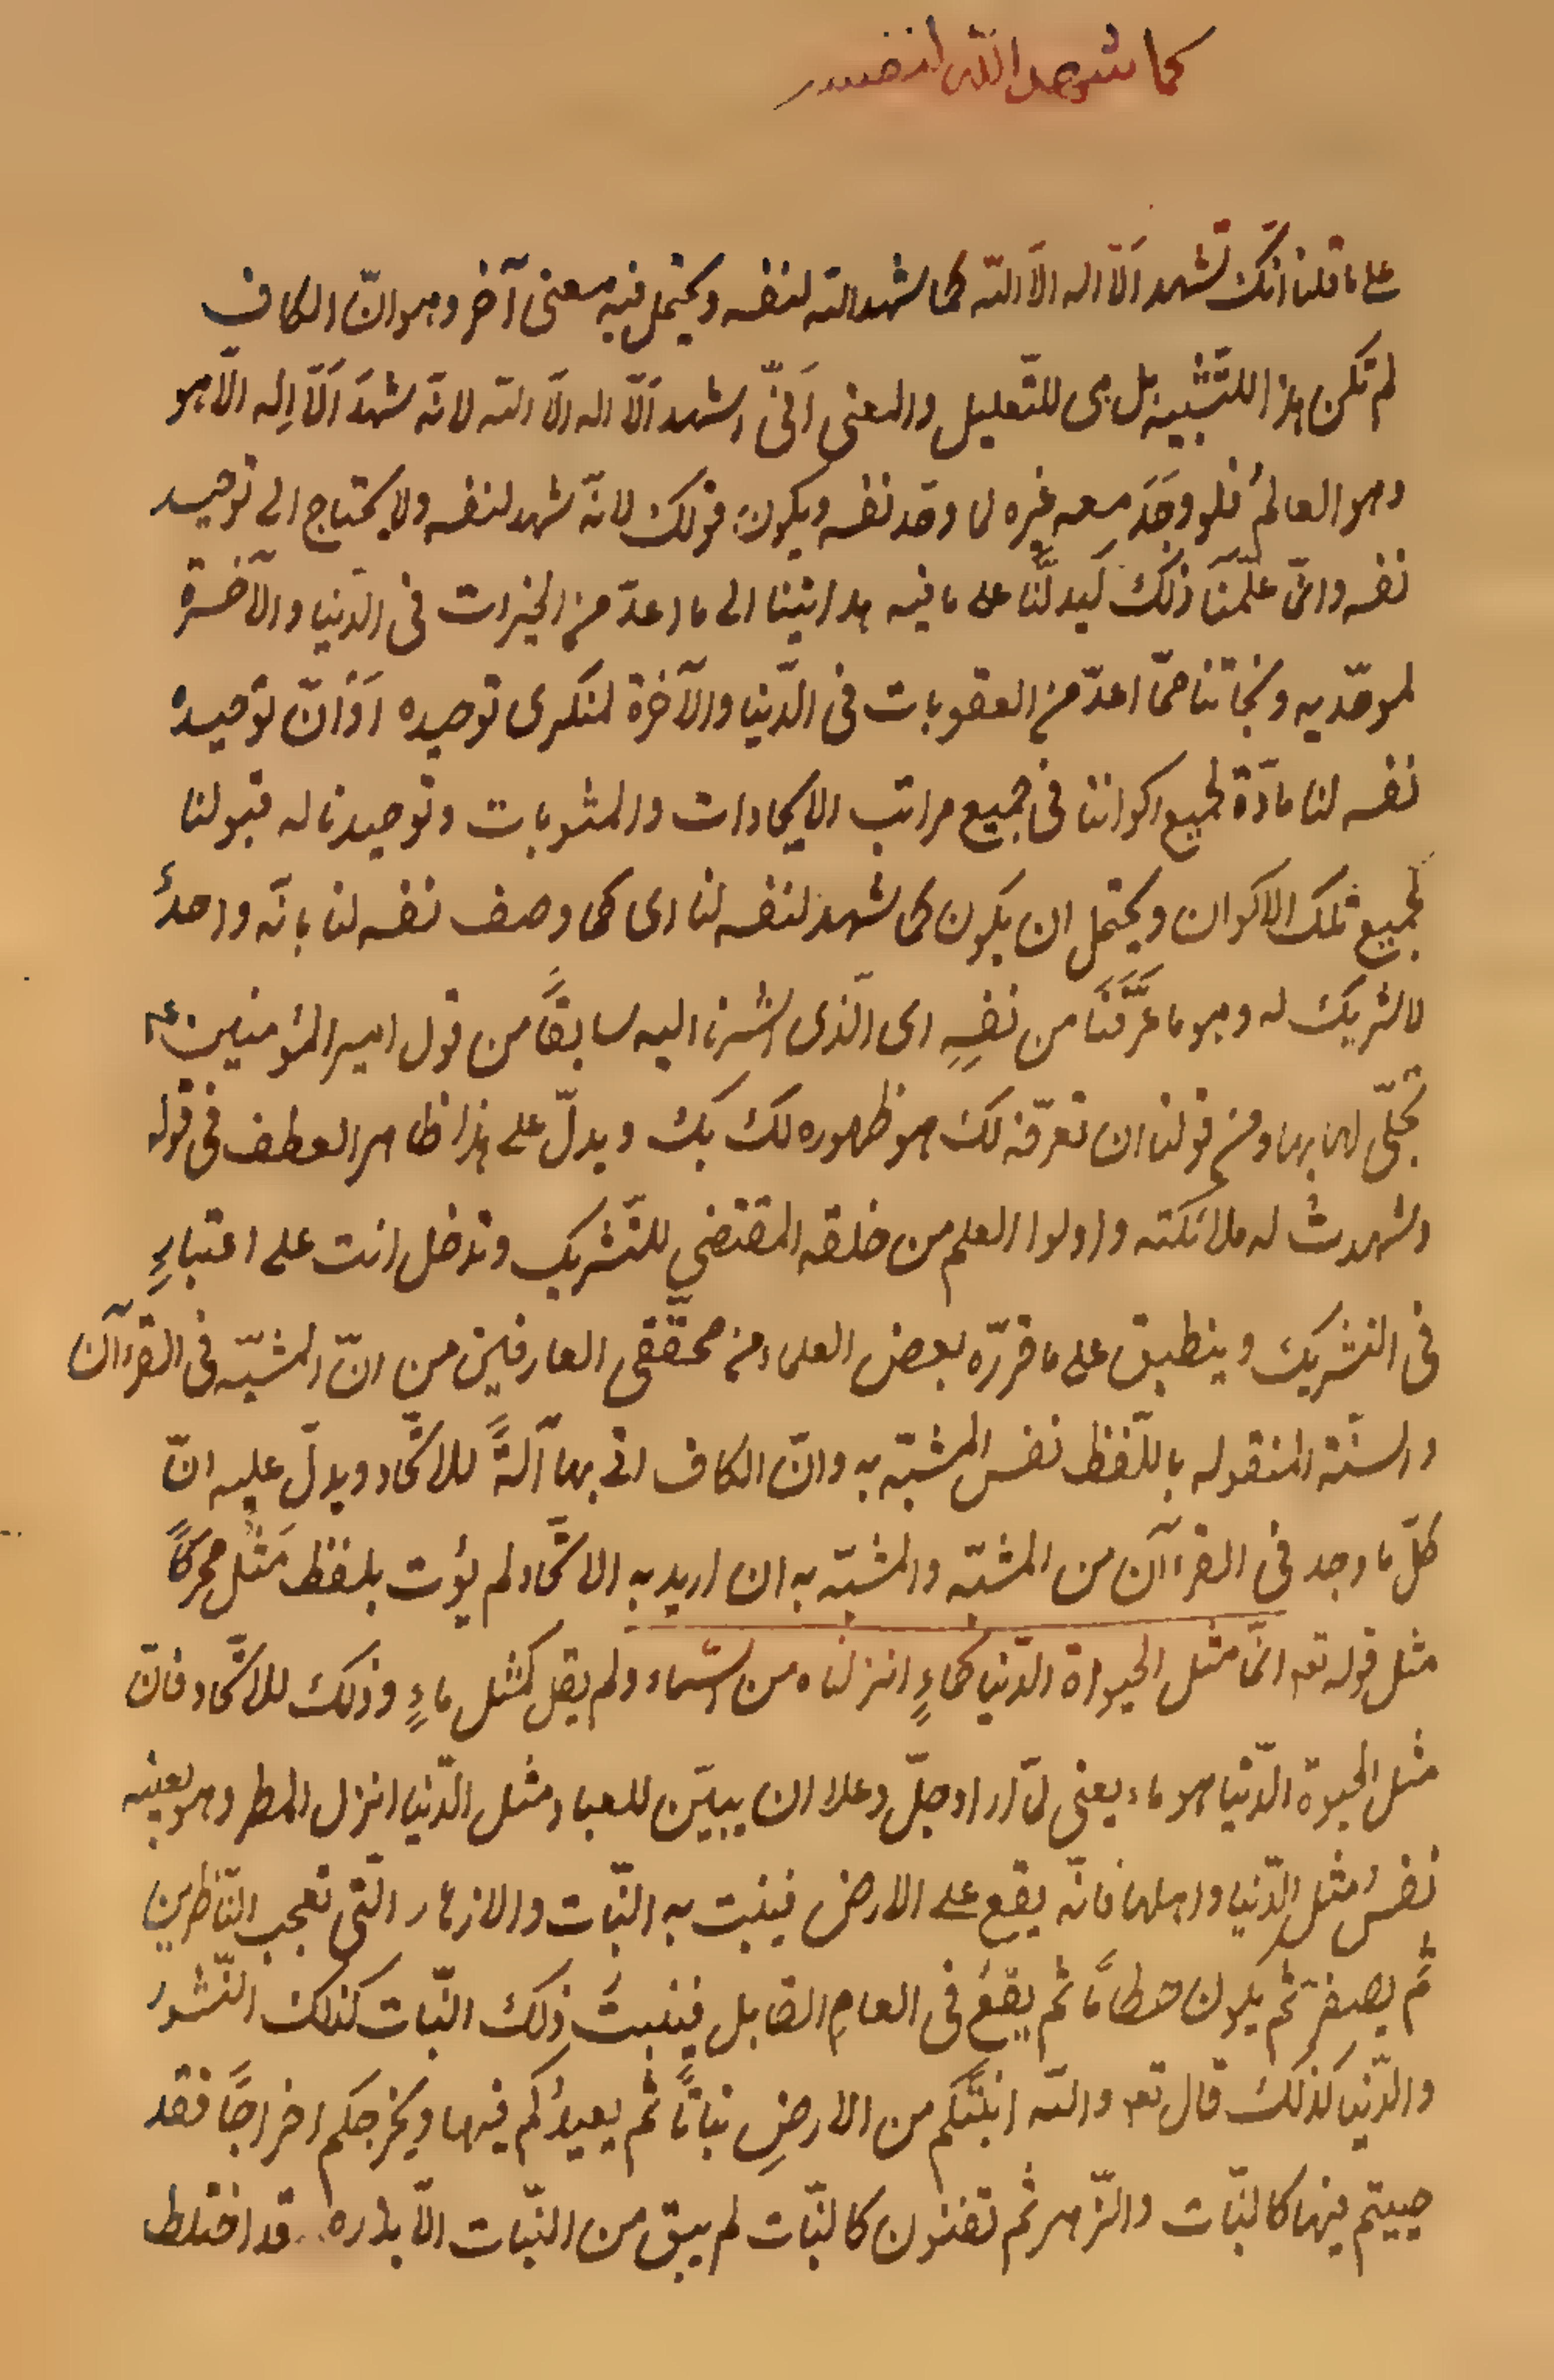 كما شهد الله لنفسه
على ما قلنا انّك تشهد الّا اله الا اللّه كما شهد اللّه لنفسه ويحتمل فيه معنى آخر وهو انّ الكاف
لم تكن هنا للتّشبيه بل هى للتّعليل والمعنى انّى اشهد الّا اله الّا اللّه لانّه شهد الّا اله الّا هو
وهو العالم فلو وجَد معه غيره لما وحّد نفسه ويكون قولك لانّه شهد لنفسه ولا يحتاج الى توحيد
نفسه وانّما علّمنا ذلك ليدلّنا على ما فيه هدايتنا الى ما اعدّ من الخيرات فى الدّنيا والآخرة
لموحّديه ونجاتنا ممّا اعدّ من العقوبات فى الدّنيا والآخرة لمنكرى توحيده او أنّ توحيده
نفسه لنا مادّة لجميع اكواننا فى جميع مراتب الايجادات والمثوبات وتوحيدنا له قبولنا
لجميع تلك الاكوان ويحتمل ان يكون كما شهد لنفسه لنا اى كما وصف نفسه لنا بانّه واحدٌ
لا شريك له وهو ما عَرَّفَنَا من نفسِهِ اى الّذى اشرنا اليه سابقًا من قول امير المؤمنين ع
تجلّى لها بها ومن قولنا ان تعرّفه لك هو ظهوره لك بك ويدلّ على هذا ظاهر العطف فى قوله
وشهدت له ملائكته واولوا العلم من خلقه المقتضى للتّشريك وتدخل انت على اعتبارٍ
فى التشريك وينطبق على ما قررّه بعض العلماء من محقّقى العارفين من انّ المشبّه فى القرءآن
والسنّة المنقوله باللّفظ نفس المشبّه به وانّ الكاف اتى بها آلةً للاتّحاد ويدلّ عليه انّ
كلّ ما وجد فى القرءآن من المشبّه والمشبّه به ان اريد به الاتّحاد لم يؤت بلفظ مَثَل محركًا
مثل قوله تعا انّما مثل الحيواة الدّنيا كماءٍ انزلناه من السّماء ولم يقل كمثل ماءٍ وذلك للاتّحاد فانّ
مثل الحيوة الدّنيا هو ماء يعنى لمّا اراد جلّ وعلا ان يبيّن للعباد مثل الدّنيا انزل المطر وهو بعينه
نفس مثل الدّنيا واهلها فانّه يقع على الارض فينبت به النّبات والازهار الّتى تعجب النّاظرين
ثمّ يصفرّ ثم يكون حطامًا ثم يقع فى العام القابل فينبت ذلك النّبات كذلك النّشور
والدّنيا كذلك قال تعا واللّه انبتكم من الارضِ نباتًا ثم يعيدُكم فيها ويخرجكم اخراجًا فقد
حييتم فيها كالنّبات والزّهر ثم تفنون كالنّبات لم يبق من النّبات الّا بذاره قد اختلط